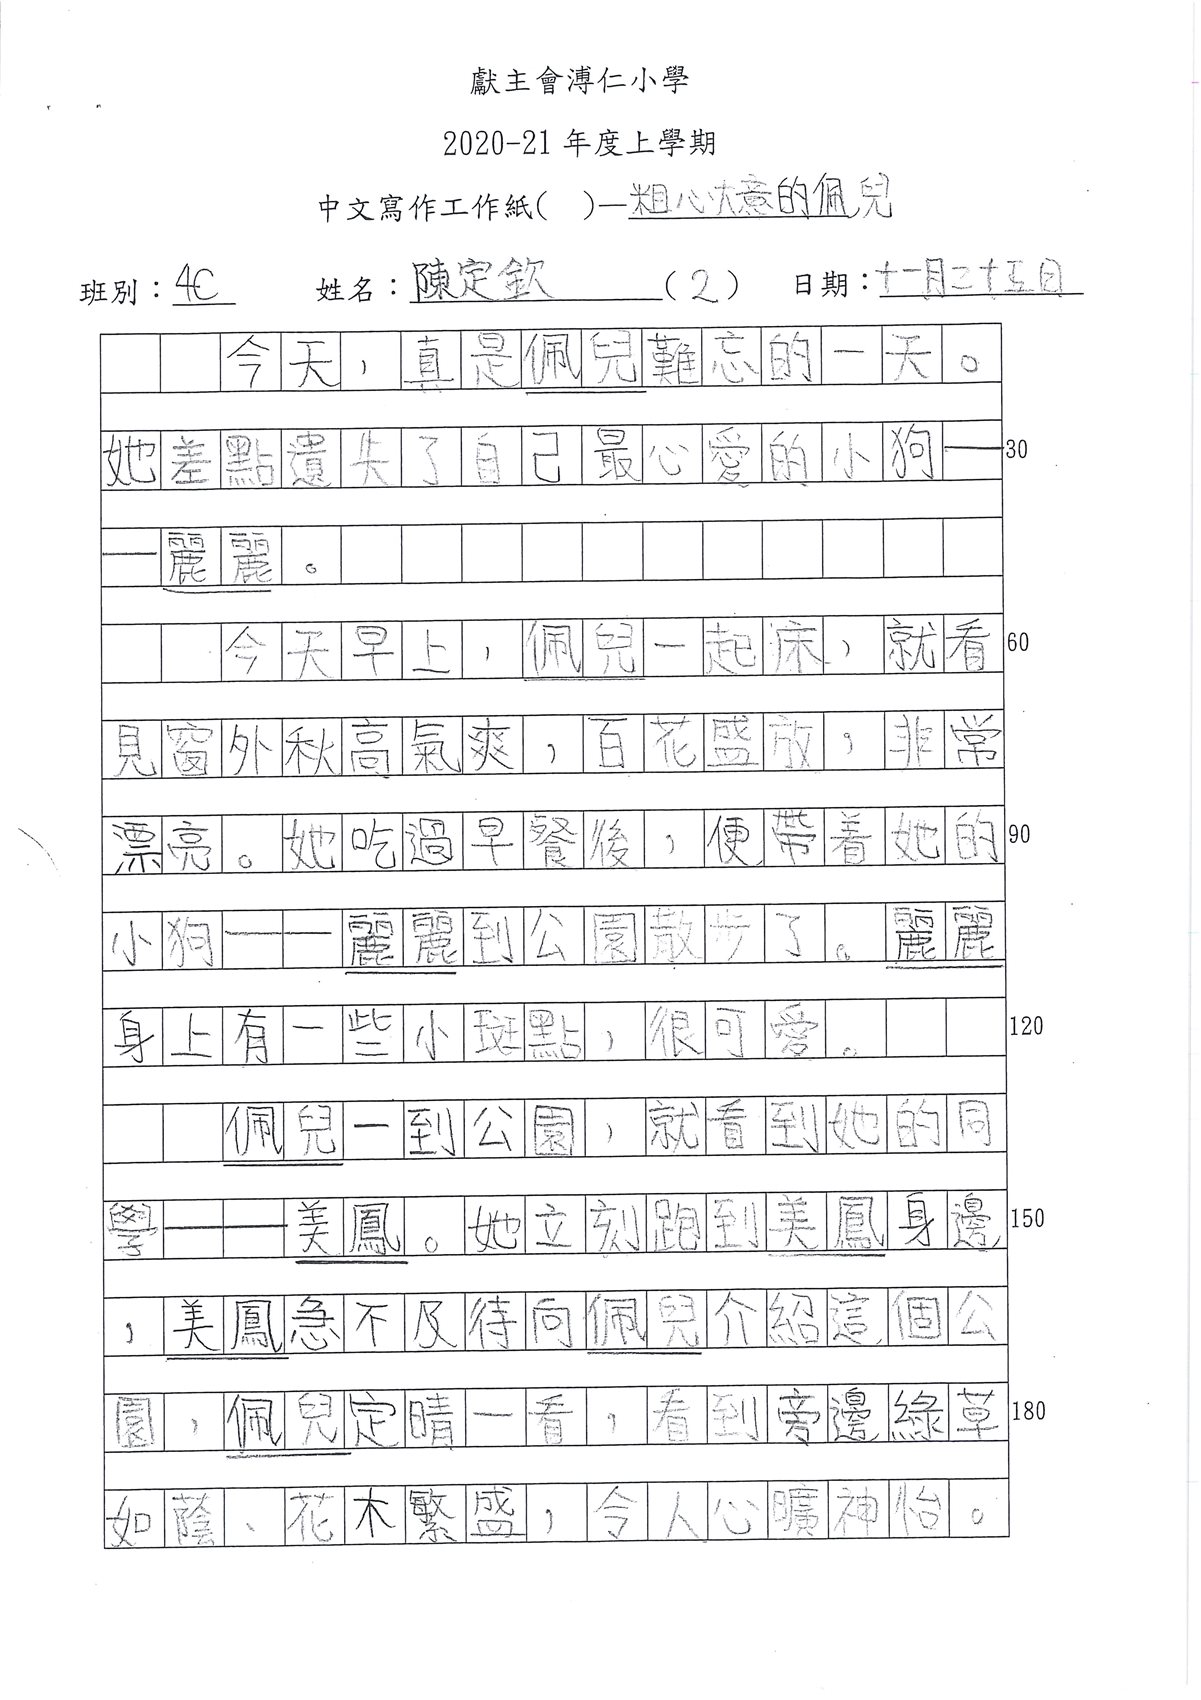 獻主會溥仁小學
2020-21 年度上學期
中文寫作工作紙( )—粗心大意的佩兒
班別：4C 姓名：陳定欽 (2) 日期：十一月二十五日
今天，真是佩兒難忘的一天。
她差點遺失了自己最心愛的小狗— 30
—麗麗。
今天早上，佩兒一起床，就看 60
見窗外秋高氣爽，百花盛放，非常
漂亮。她吃過早餐後，便帶着她的 90
小狗——麗麗到公園散步了。麗麗
身上有一些小斑點，很可愛。 120
佩兒一到公園，就看到她的同
學——美鳳。她立刻跑到美鳳身邊 150
，美鳳急不及待向佩兒介紹這個公
園，佩兒定晴一看，看到旁邊綠草 180
如蔭、花木繁盛，令人心曠神怡。